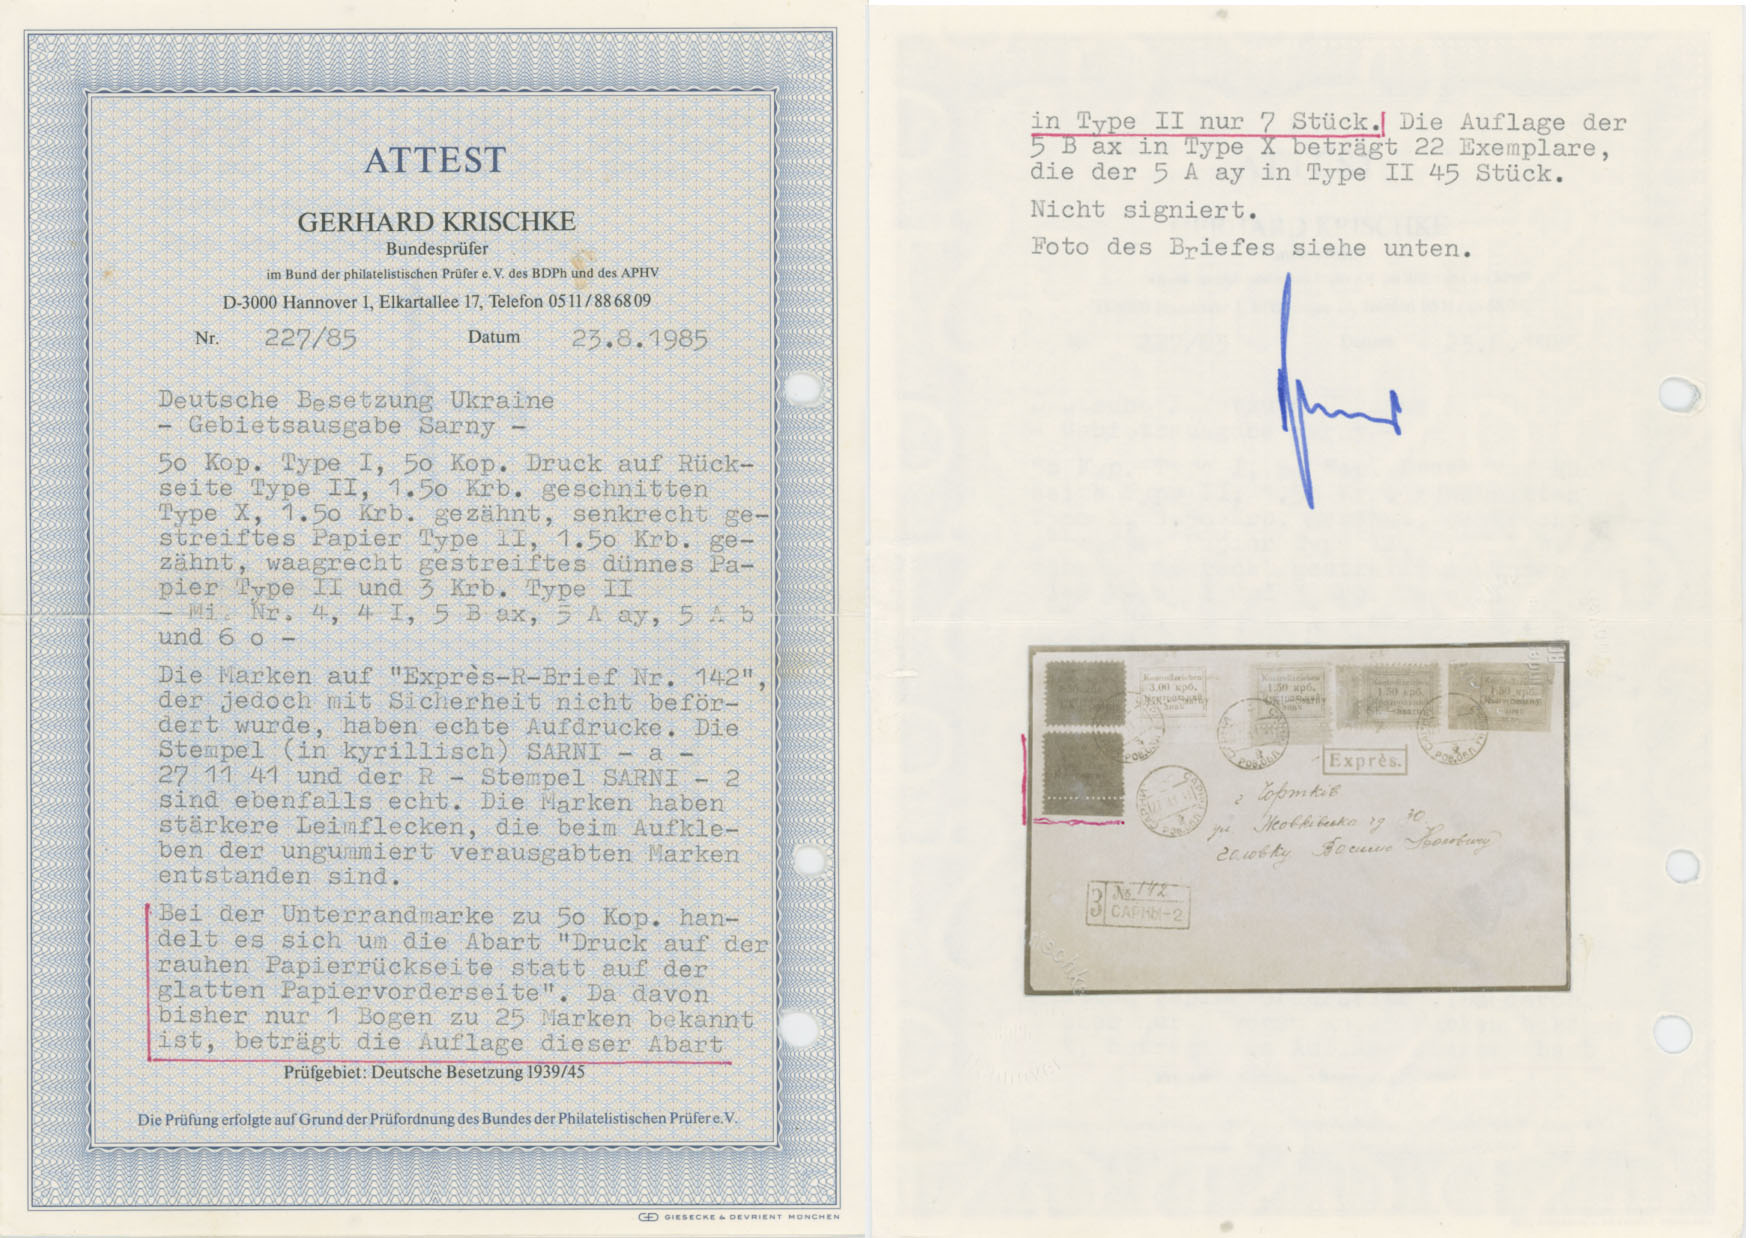 ATTEST
GERHARD KRISCHKE
Bundesprüfer
im Bund der philatelistischen Prüfer e.V. des BDPh und des APHV
D-3000 Hannover 1, Elkartallee 17, Telefon 0511/886809
Nr. 227/85 Datum 23.8.1985
Deutsche Besetzung Ukraine
- Gebietsausgabe Sarny -
50 Kop. Type I, 50 Kop. Druck auf Rück-
seite Type II, 1.50 Krb. geschnitten
Type X, 1.50 Krb. gezähnt, senkrecht ge-
streiftes Papier Type II, 1.50 Krb. ge-
zähnt, waagrecht gestreiftes dünnes Pa-
pier Type II und 3 Krb. Type II
- Mi. Nr. 4, 4 I, 5 B ax, 5 A ay, 5 A b
und 6 o -
Die Marken auf "Exprès-R-Brief Nr. 142",
der jedoch mit Sicherheit nicht beför-
dert wurde, haben echte Aufdrucke. Die
Stempel (in kyrillisch) SARNI - a -
27 11 41 und der R - Stempel SARNI - 2
sind ebenfalls echt. Die Marken haben
stärkere Leimflecken, die beim Aufkle-
ben der ungummiert verausgabten Marken
entstanden sind.
Bei der Unterrandmarke zu 50 Kop. han-
delt es sich um die Abart "Druck auf der
rauhen Papierrückseite statt auf der
glatten Papiervorderseite". Da davon
bisher nur 1 Bogen zu 25 Marken bekannt
ist, beträgt die Auflage dieser Abart
Prüfgebiet: Deutsche Besetzung 1939/45
Die Prüfung erfolgte auf Grund der Prüfordnung des Bundes der Philatelistischen Prüfer e.V.
GIESECKE & DEVRIENT MÜNCHEN
in Type II nur 7 Stück. Die Auflage der
5 B ax in Type X beträgt 22 Exemplare,
die der 5 A ay in Type II 45 Stück.
Nicht signiert.
Foto des Briefes siehe unten.
Kontrollzeichen
3.00 крб.
Контрольний
знак
Kontrollzeichen
1.50 крб.
1.50 крб.
1.50 крб.
Exprès.
г Чортків
ул. 30
З № 142
САРНЫ-2